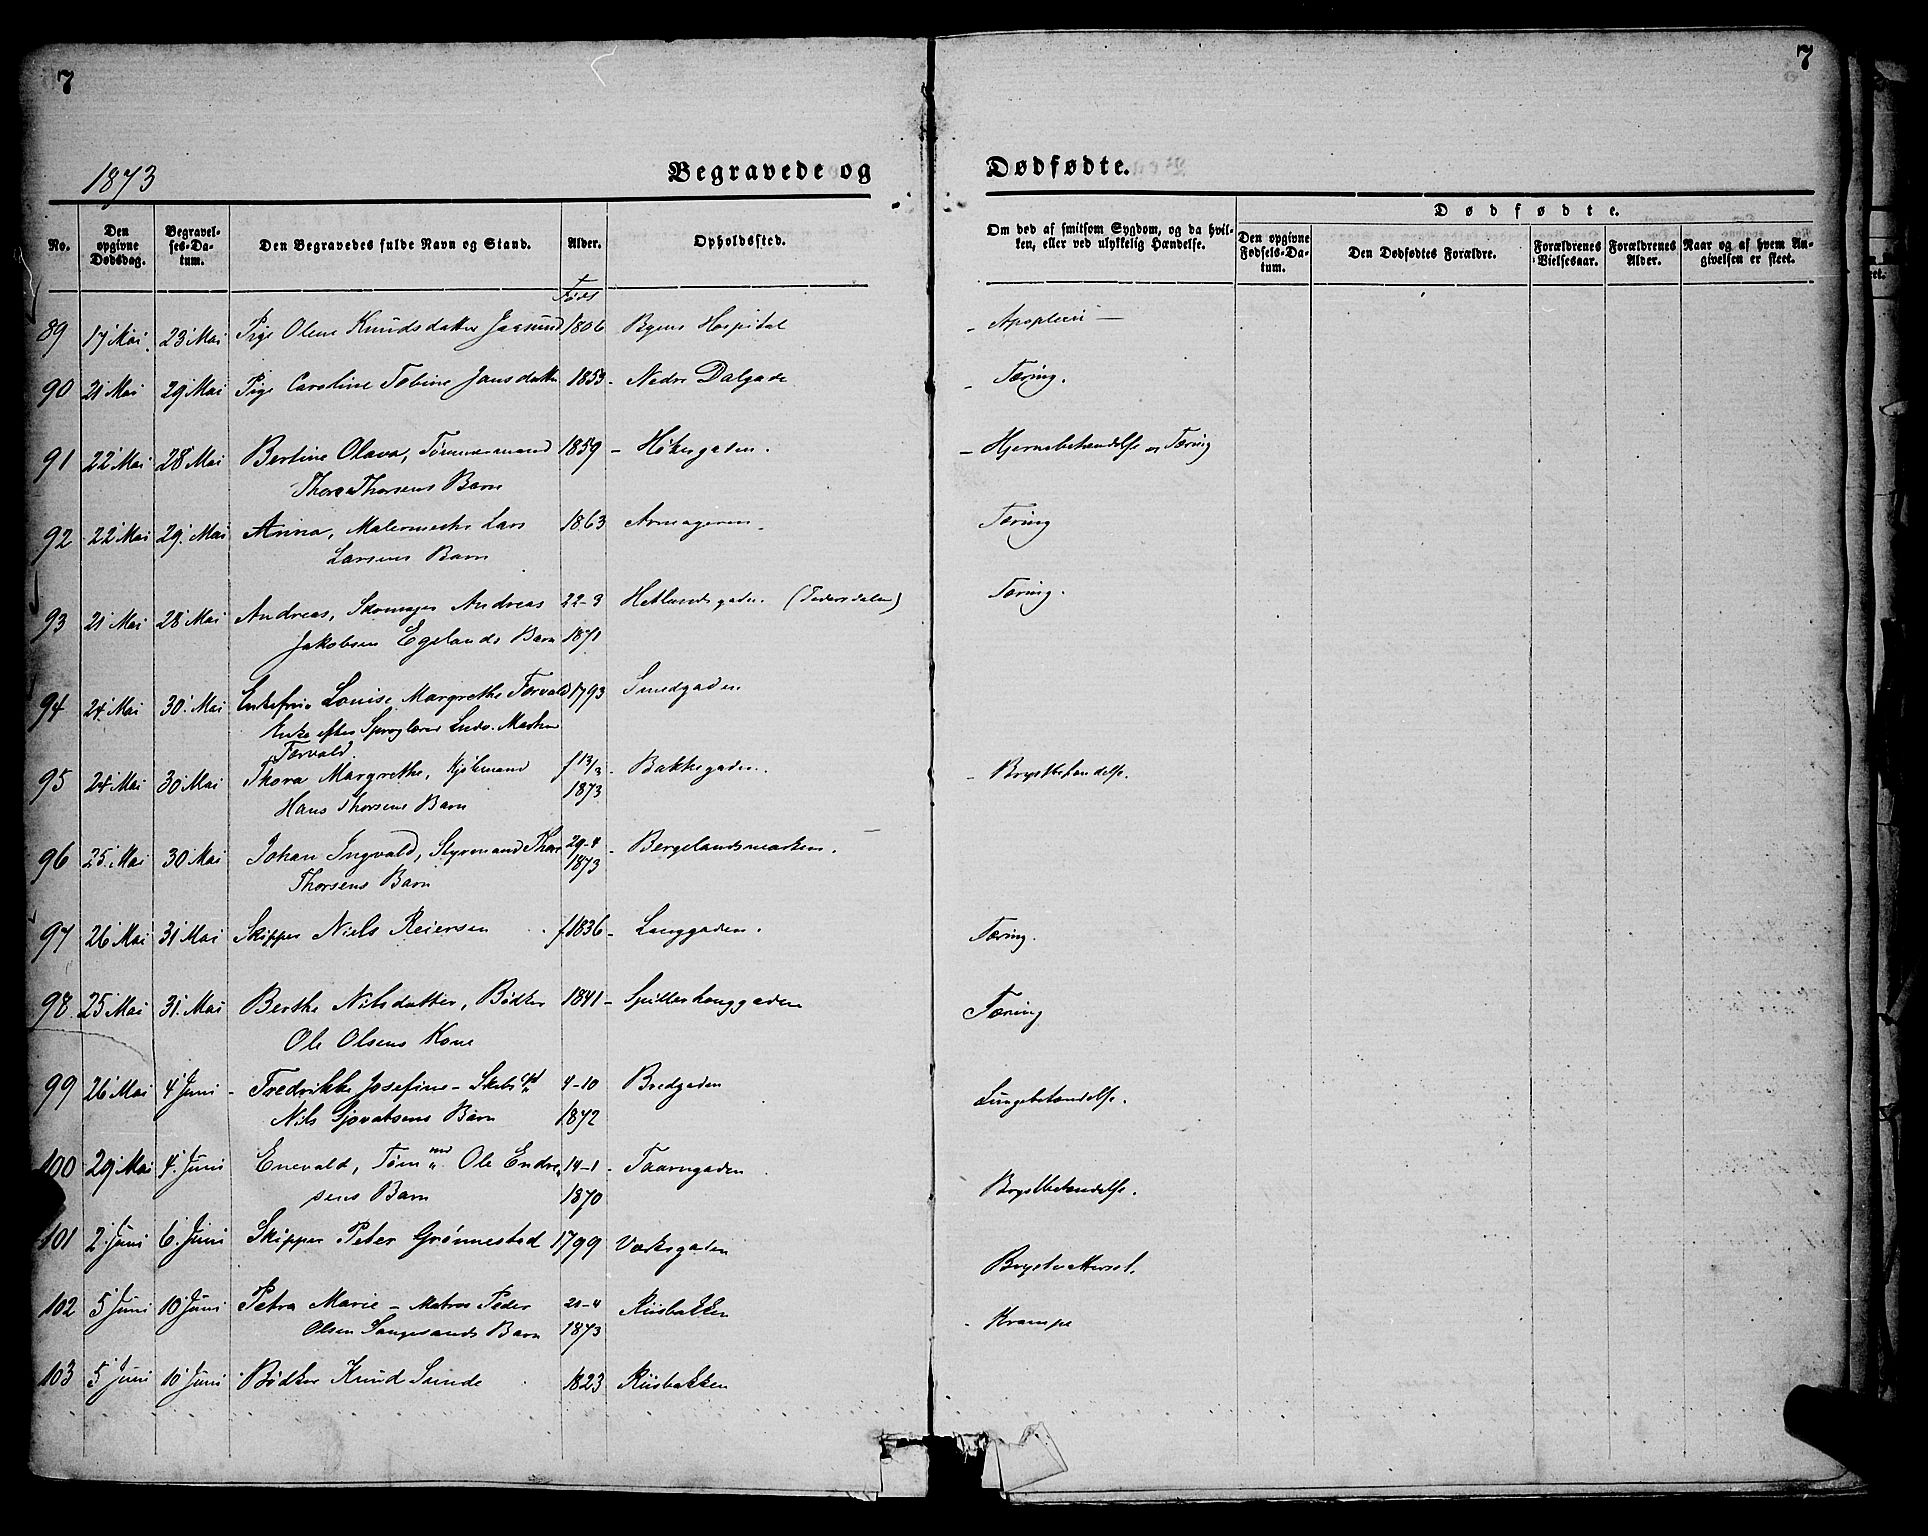 7
7
1873
Begravede og Dødfødte.
No.
Den opgivne Dødsdag.
Begravelses-Datum.
Den Begravedes fulde Navn og Stand.
Alder.
Opholdssted.
Om død af smitsom Sygdom, og da hvilken, eller ved ulykkelig Hændelse.
Dødfødte.
Den opgivne Fødsels-Datum.
Den Dødfødtes Forældre.
Forældrenes Vielsesaar.
Forældrenes Alder.
Naar og af hvem Angivelsen er skeet.
Føds
89 17 Mai 23 Mai Pige Olene Knudsdatter 1806 Byens Hospital - Apoplexi -
90 21 Mai 29 Mai Pige Caroline Tobine Jansdatter 1853 - Nedre Dalgade - Tæring.
91 22 Mai 28 Mai Bertine Olava, Tømmermand 1859 - Høkergaden. - Hjernebetændelse og Tæring
Thore Thorsens Barn
92 22 Mai 29. Mai Anna, Malermester Lars 1863 Armageren. Tæring
Larsens Barn
93 21 Mai 28 Mai Andreas, Skomager Andreas 22-9 Hetlandsgaden. Tæring.
Jakobsen Egelands Barn 1871
94 24. Mai 30. Mai Enkefru Louise Margrethe Torvald 1793 Smedgaden
Enke efter Sproglærer Ludv. Torvald
95 24 Mai 30 Mai Thora Margrethe, Kjøbmand f 13/3 1873 - Bakkegaden. - Brystbetændelse.
Hans Thorsens Barn
96 25. Mai 30 Mai Johan Ingvald, Styrmand Thor 29-4 1873 - Bergelandsmarken.
Thorsens Barn
97 26 Mai 31 Mai Skipper Niels Reiersen f 1836 - Langgaden. Tæring.
98 25 Mai 31. Mai Berthe Nilsdatter, Bødker 1841 - Spilderhauggaden Tæring
Ole Olsens Kone
99 26 Mai 4 Juni - Fredrikke Josefine - 4-10 Bredgaden Lungebetændelse.
Nils Barn 1872
100 29 Mai 4. Juni Enevald, Tøm md Ole Endre 14-1 - Taarngaden Brystbetændelse.
sens Barn 1870
101 2. Juni 6. Juni Skipper Peter Grønnestad 1799 Værksgaden
102 5 Juni 10 Juni Petra Marie - Matros Peder 21-4 Riisbakken - Krampe
Olsen Barn 1873
103 5 Juni 10 Juni Bødker Knud Sunde 1823 Riisbakken